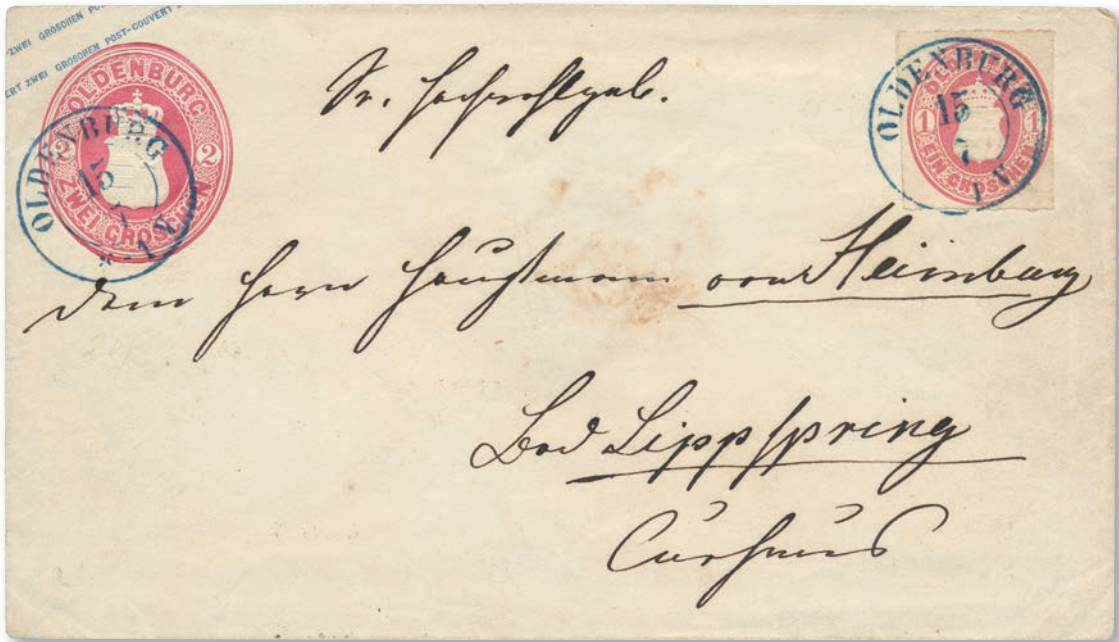 ZWEI GROSCHEN POST-COUVERT
ERT ZWEI GROSCHEN POST-COUVERT
OLDENBURG
2 2
ZWEI GROSCHEN
OLDENBURG
15
7
* - 1 N.
OLDENBURG
1 1
EIN GROSCHEN
OLDENBURG
15
7
1 N.
Sr. Hochwohlgeb.
dem Herrn Hauptmann von Heimburg
Bad Lippspring
Curhaus